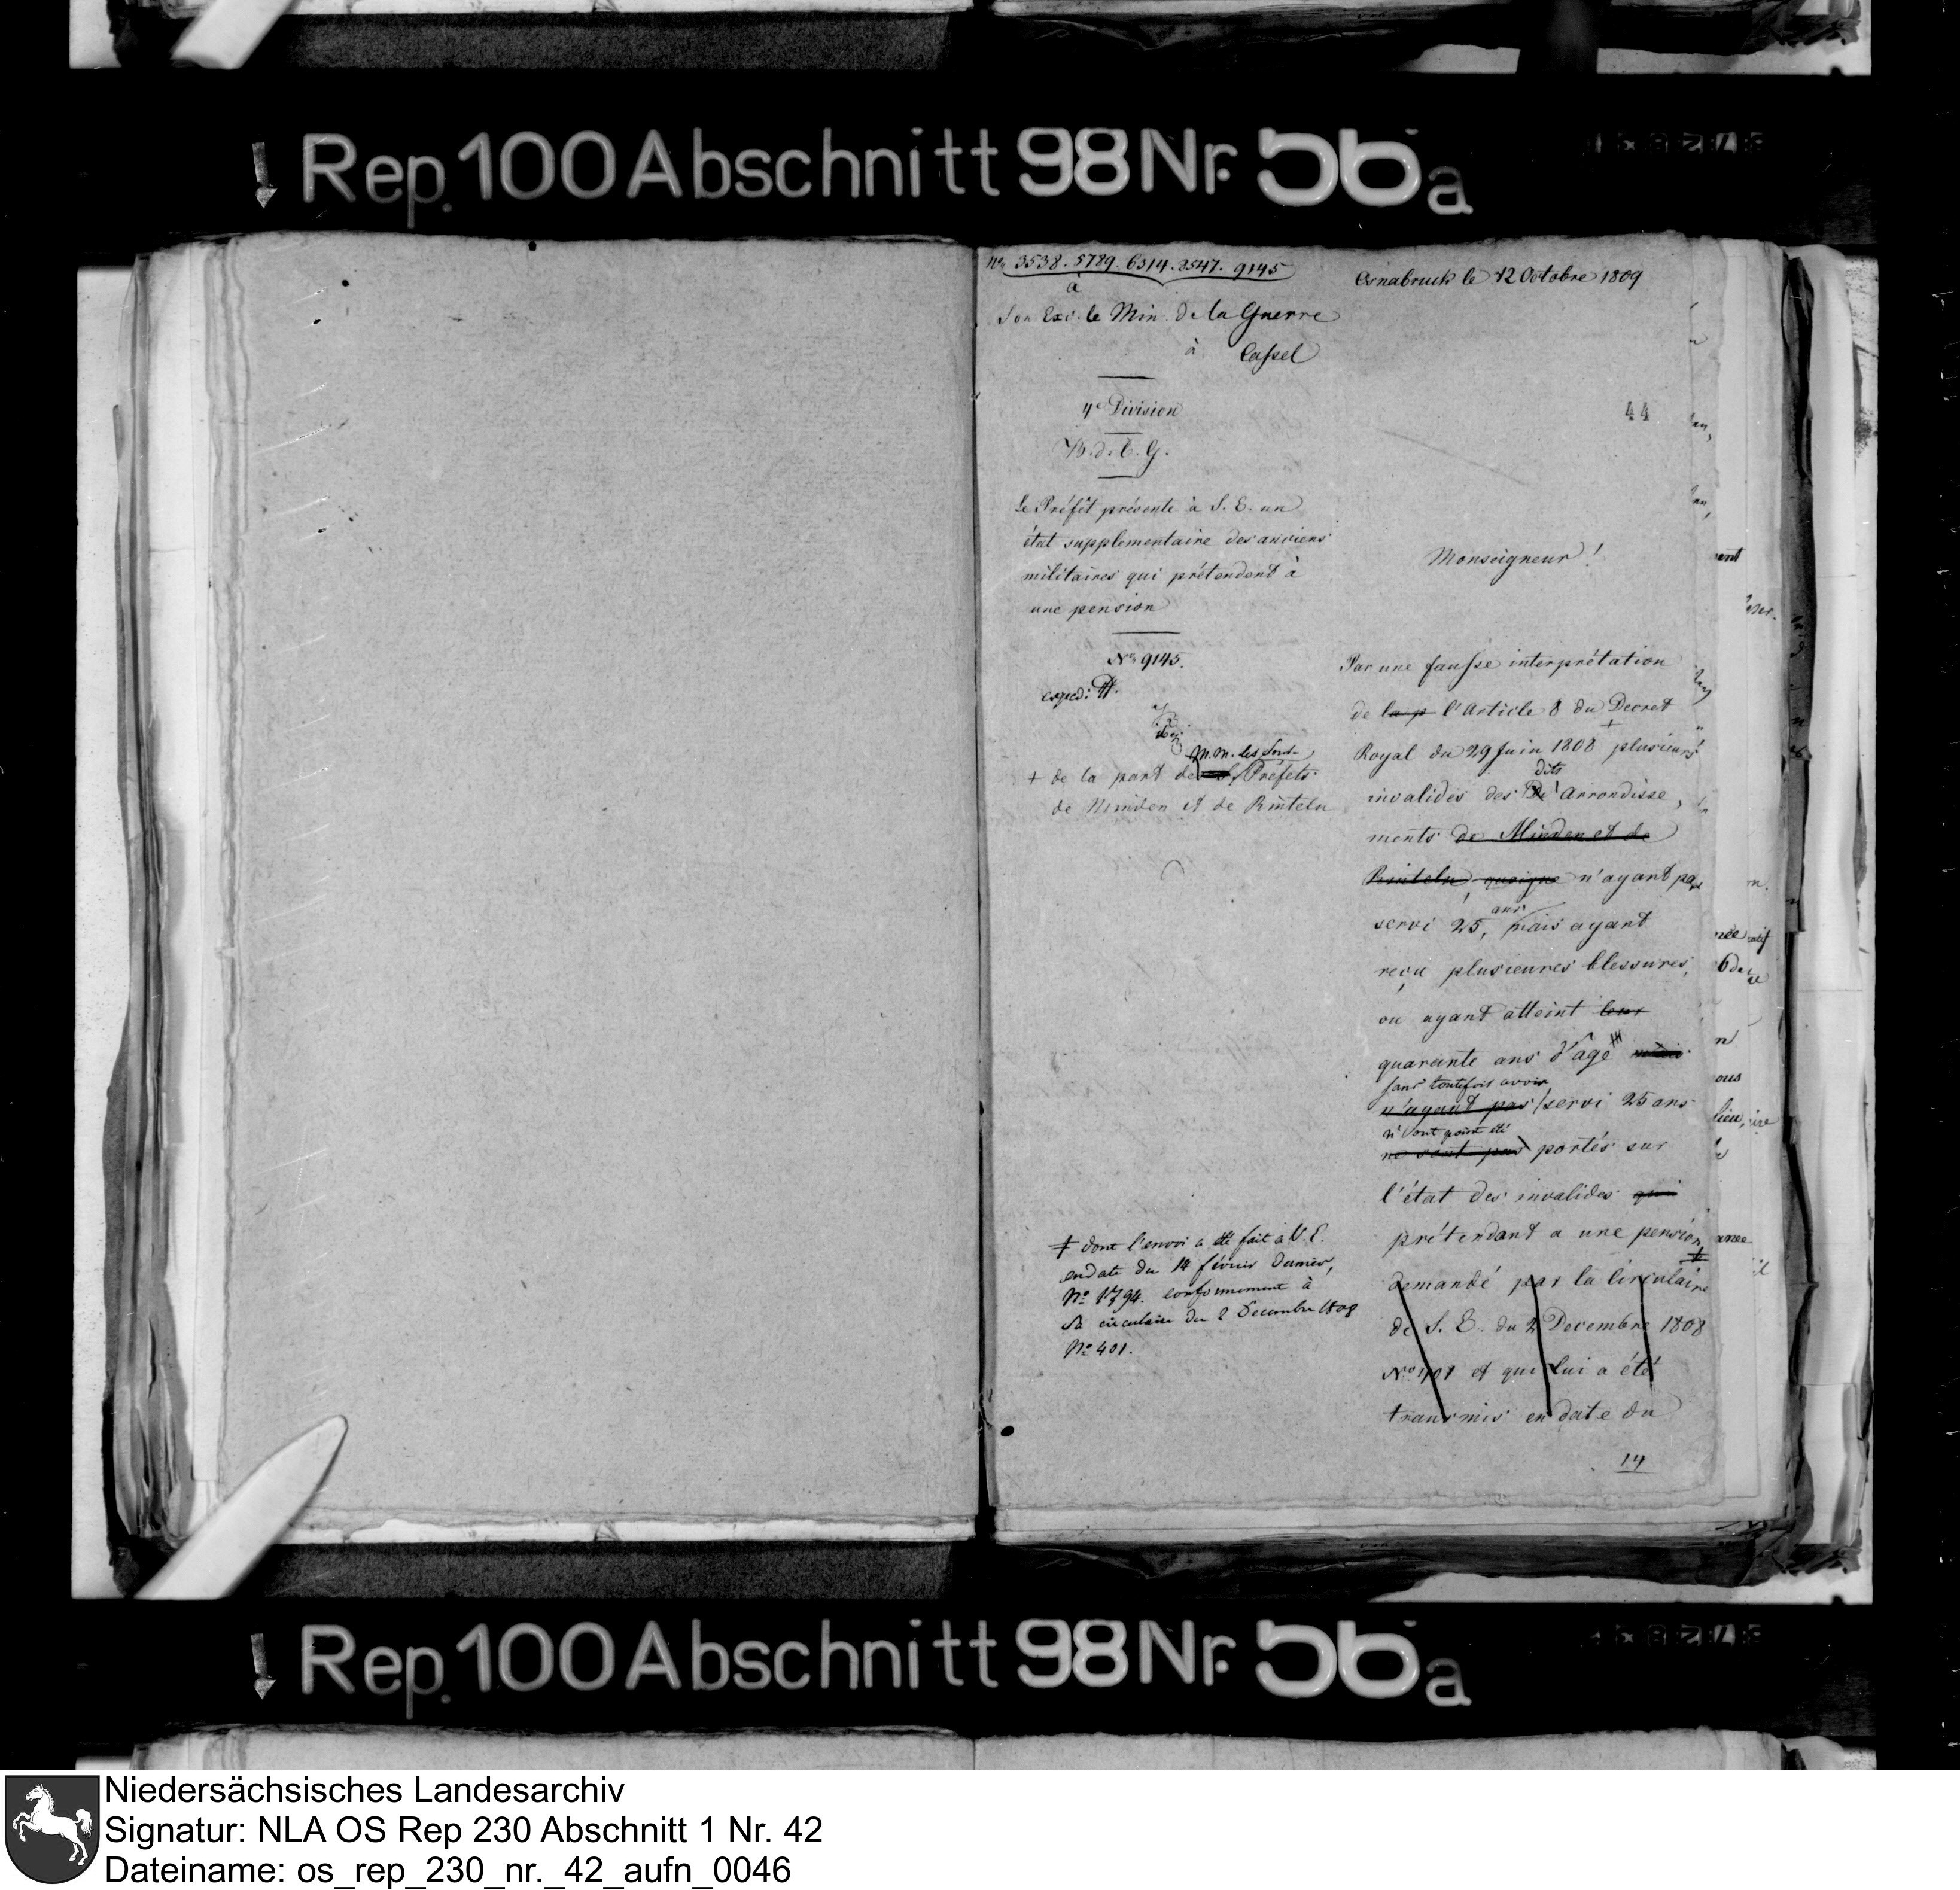 Rep. 100 Abschnitt 98 Nr. 56a
No 3538. 5789. 6314. 8547. 9145
a
Son Exc. le Min. de la Guerre
à Cassel
4e Division
B. d. C. G.
Le Préfêt présente à S. E. un
état supplementaire des anciens
militaires qui prétendent à
une pension
No 9145.
exped:
M.M. les Sous-
+ de la part de Préfets
de Minden et de Rinteln
‡ dont l'envoi a été fait à V. E.
en date du 14 février dernier,
No 1794. conformement à
Sa circulaire du 2 Decembre 1808
No 401.
Osnabruck le 12 Octobre 1809
44
Monseigneur!
Par une fausse interprétation
de la p l'Article 8 du Decret
+
Royal du 29 Juin 1808 plusieurs
dits
invalides des Arrondisse,
ments de Minden et de
Rinteln, quoique n'ayant pas
ans
servi 25, mais ayant
reçu plusieures blessures,
ou ayant atteint leur
quarante ans d'âge mais
sans toutefois avoir
n'ayant pas servi 25 ans
n'ont point été
ne sont pas portés sur
l'état des invalides qui
prétendant a une pension
‡
demandé par la circulaire
de S. E. du 2 Decembre 1808
No 401 et qui lui a été
transmis en date du
14
Rep. 100 Abschnitt 98 Nr. 56a
Niedersächsisches Landesarchiv
Signatur: NLA OS Rep 230 Abschnitt 1 Nr. 42
Dateiname: os_rep_230_nr._42_aufn_0046